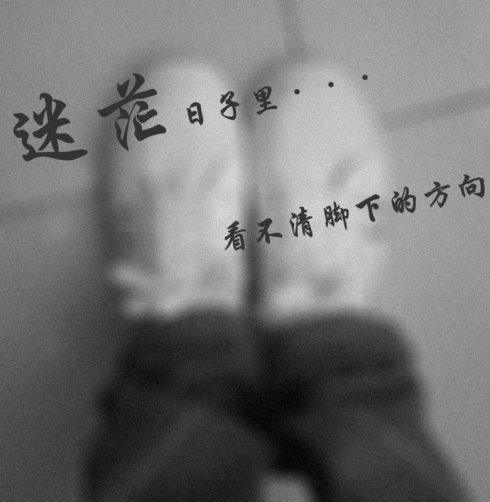 迷茫日子里...
看不清脚下的方向